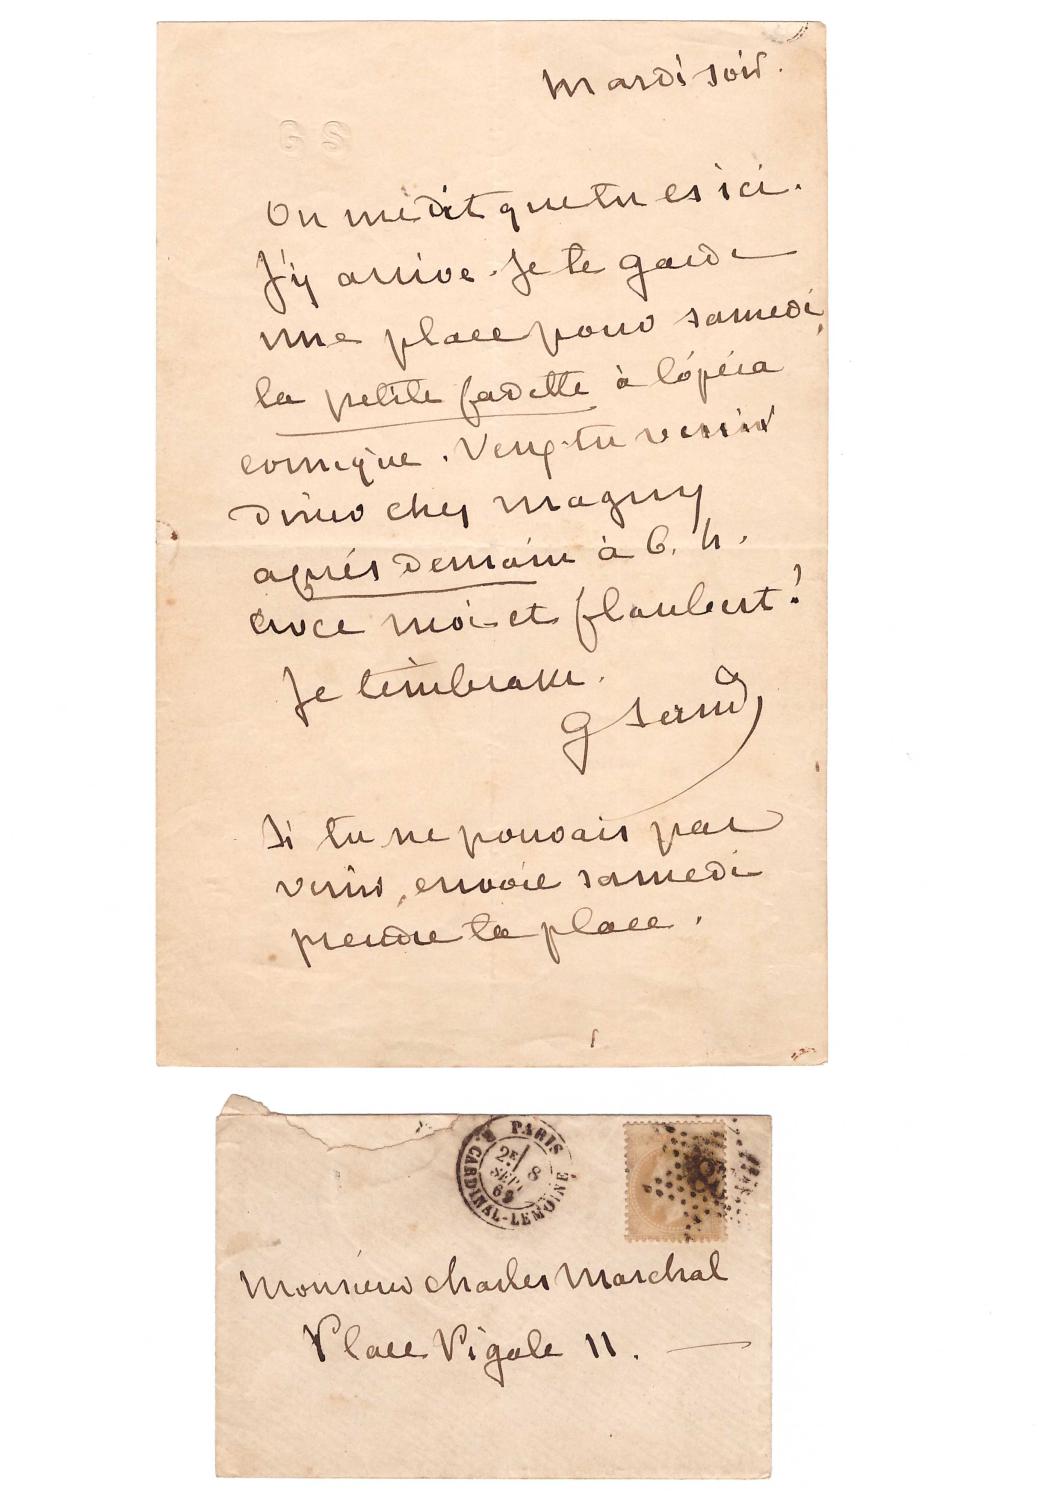 Mardi soir.
G S
On me dit que tu es ici.
J'y arrive. Je te garde
une place pour samedi,
la petite fadette à l'opéra
comique. Veux-tu venir
diner chez magny
après demain à 6. h.
avec moi et flaubert!
Je t'embrasse.
G Sand
Si tu ne pouvais pas
venir, envoie samedi
prendre ta place.
PARIS
R. CARDINAL-LEMOINE
2E
8
SEPT
69
Monsieur Charles Marchal
Place Pigale 11.